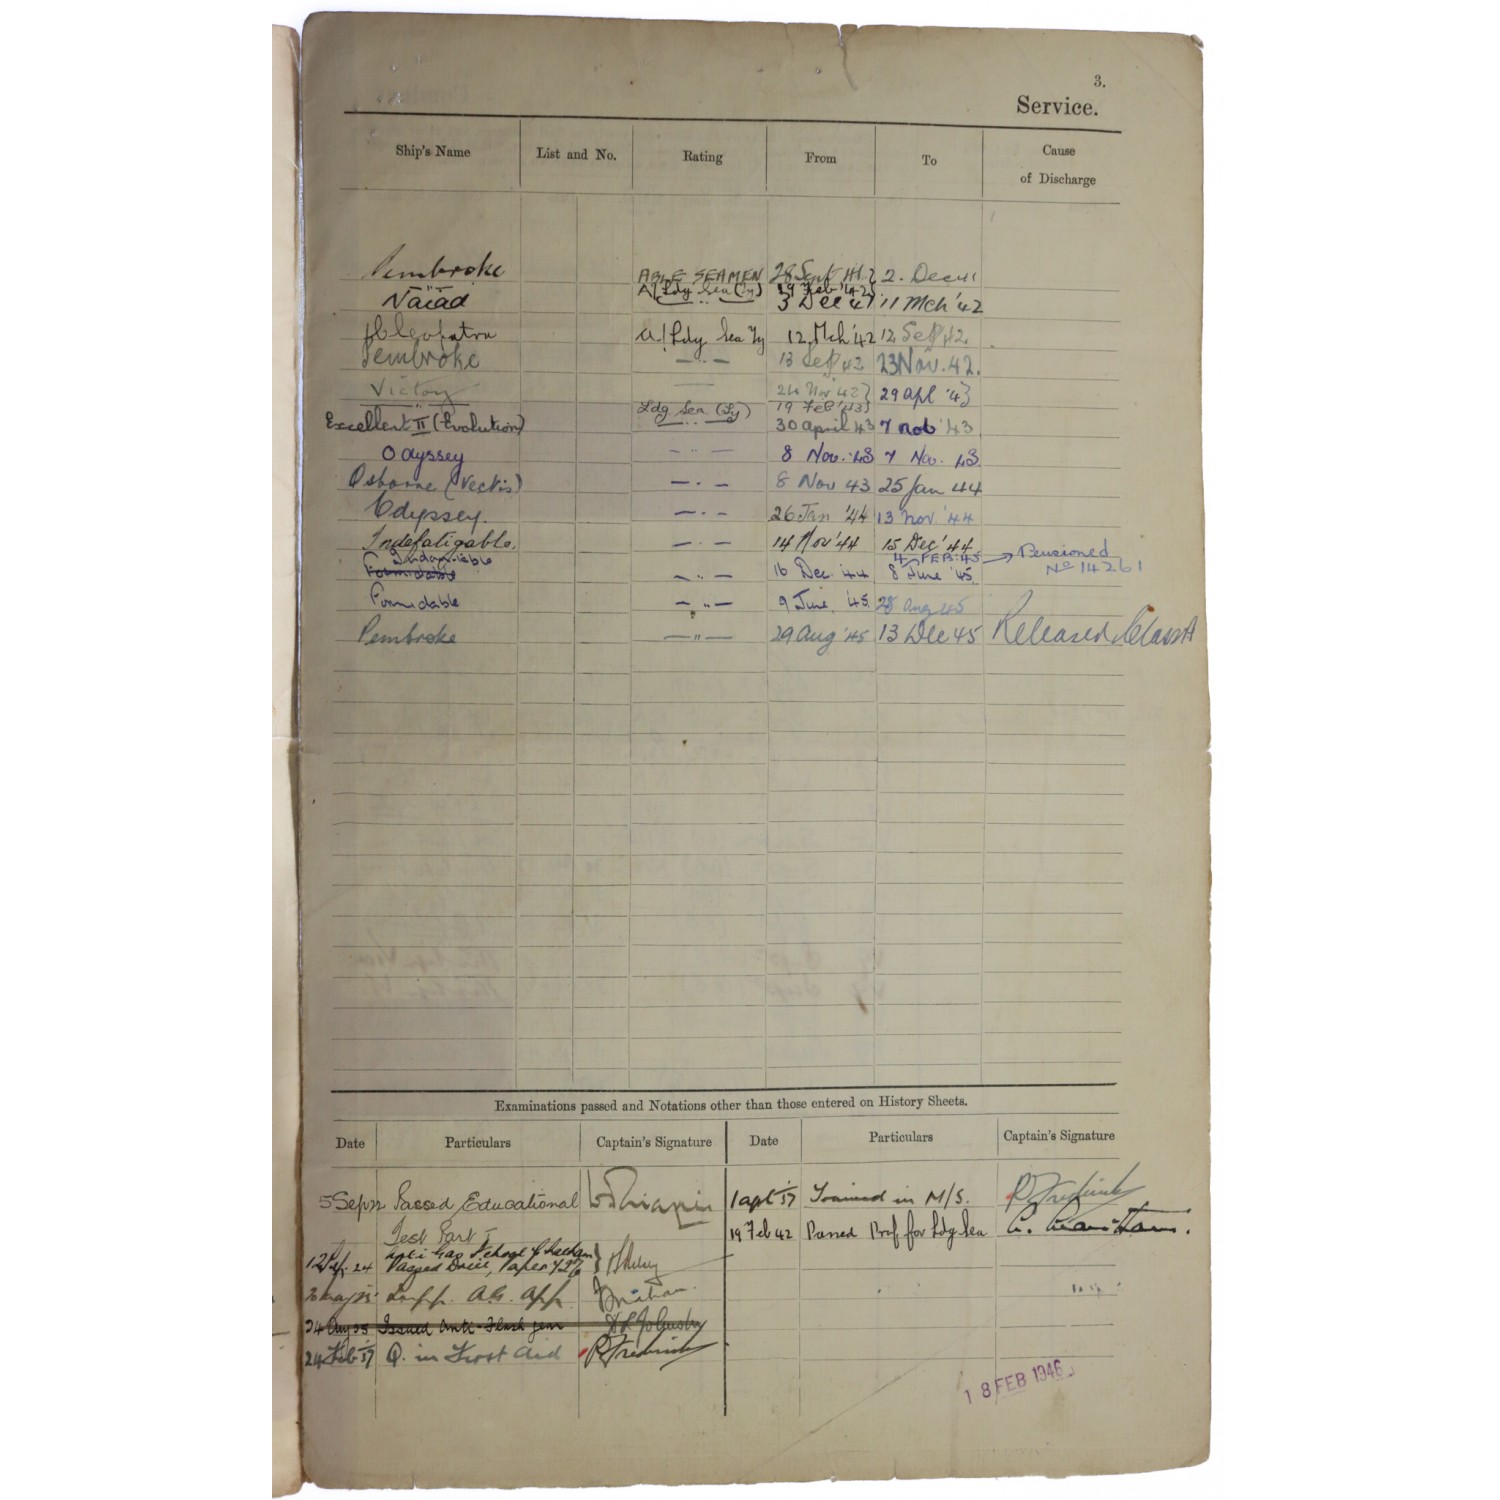 3.
Service.
Ship's Name List and No. Rating From To Cause of Discharge
Pembroke ABLE SEAMEN 28 Sept '41 2. Dec 41
A/Ldg Sea (Ty) 19 Feb '42
Naiad — " — 3 Dec '41 11 Mch '42
Cleopatra A/Ldg Sea Ty 12 Mch '42 12 Sep 42
Pembroke — " — 13 Sep 42 23 Nov. 42.
Victory — 24 Nov '42 29 Apl '43
Ldg Sea (Ty) 19 Feb '43
Excellent II (Evolution) — " — 30 April 43 7 Nov '43
Odyssey — " — 8 Nov. 43 7 Nov. 43
Osborne (Vectis) — " — 8 Nov 43 25 Jan 44
Odyssey. — " — 26 Jan '44 13 Nov '44
Indefatigable. — " — 14 Nov '44 15 Dec '44
Indomitable 4 FEB 45 Pensioned
Formidable — " — 16 Dec 44 8 June '45. No 14261
Formidable — " — 9 June. '45. 28 Aug 45
Pembroke — " — 29 Aug '45 13 Dec 45 Released Class A
Examinations passed and Notations other than those entered on History Sheets.
Date Particulars Captain's Signature Date Particulars Captain's Signature
5 Sep 22 Passed Educational 1 Apl 37 Trained in M/S.
Test Part I 19 Feb 42 Passed Prof for Ldg Sea
Anti Gas School
12 24 Passed Drill,
A.G. App.
24 Aug 35 Issued Anti-Flash gear
24 Feb 37 Q. in First Aid
18 FEB 1946